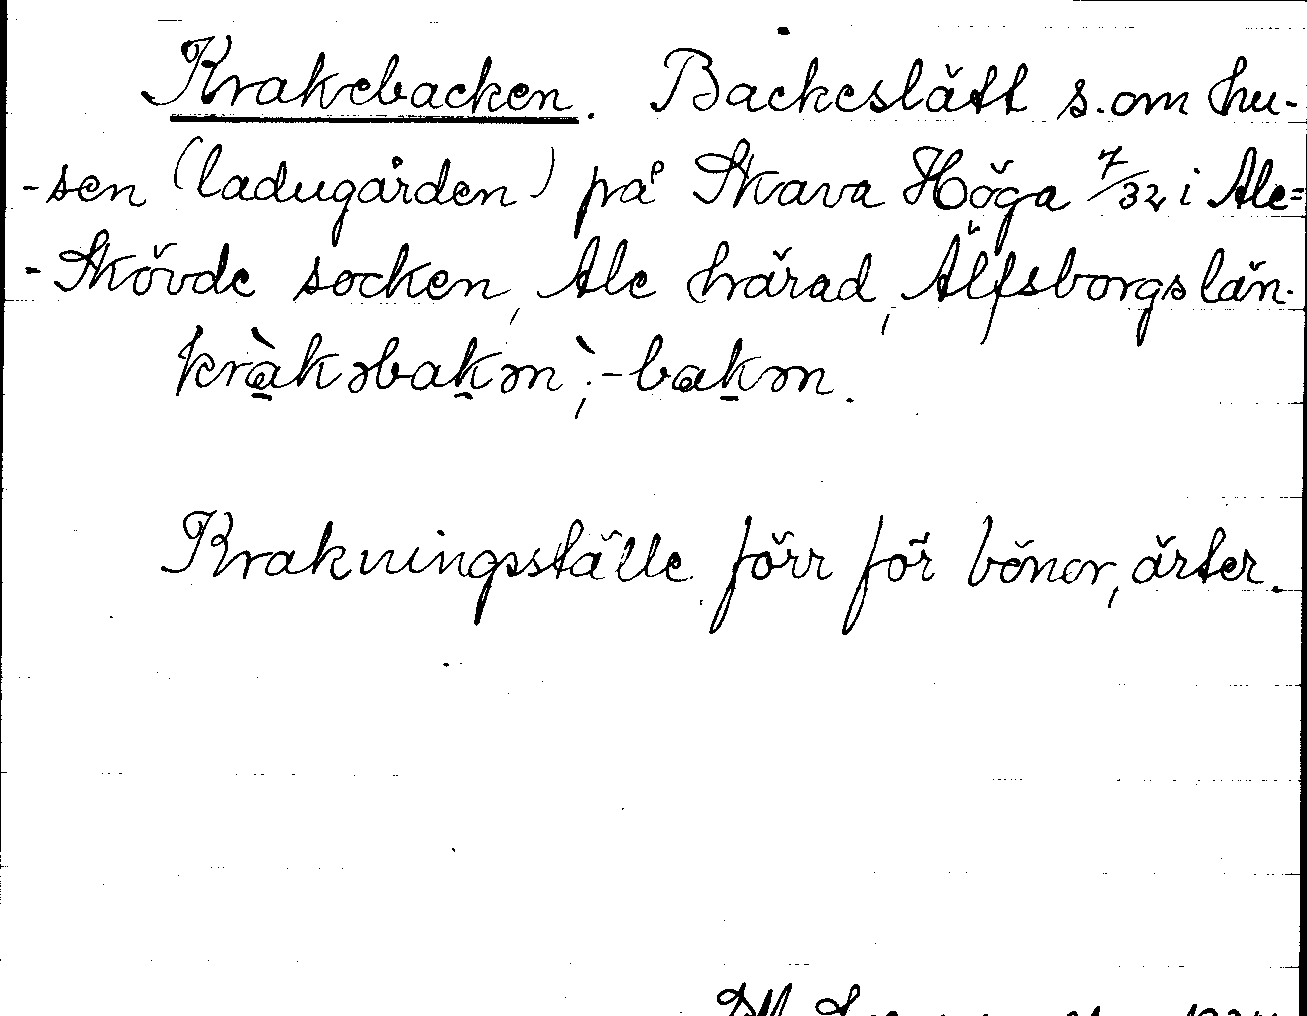 Krakebacken. Backeslätt s. om hu-
-sen (ladugården) på Skava Höga 7/32 i Ale=
-Skövde socken, Ale härad, Älfsborgs län.
kràkəbakən; -bakən.
Krakningsställe förr för bönor, ärter.